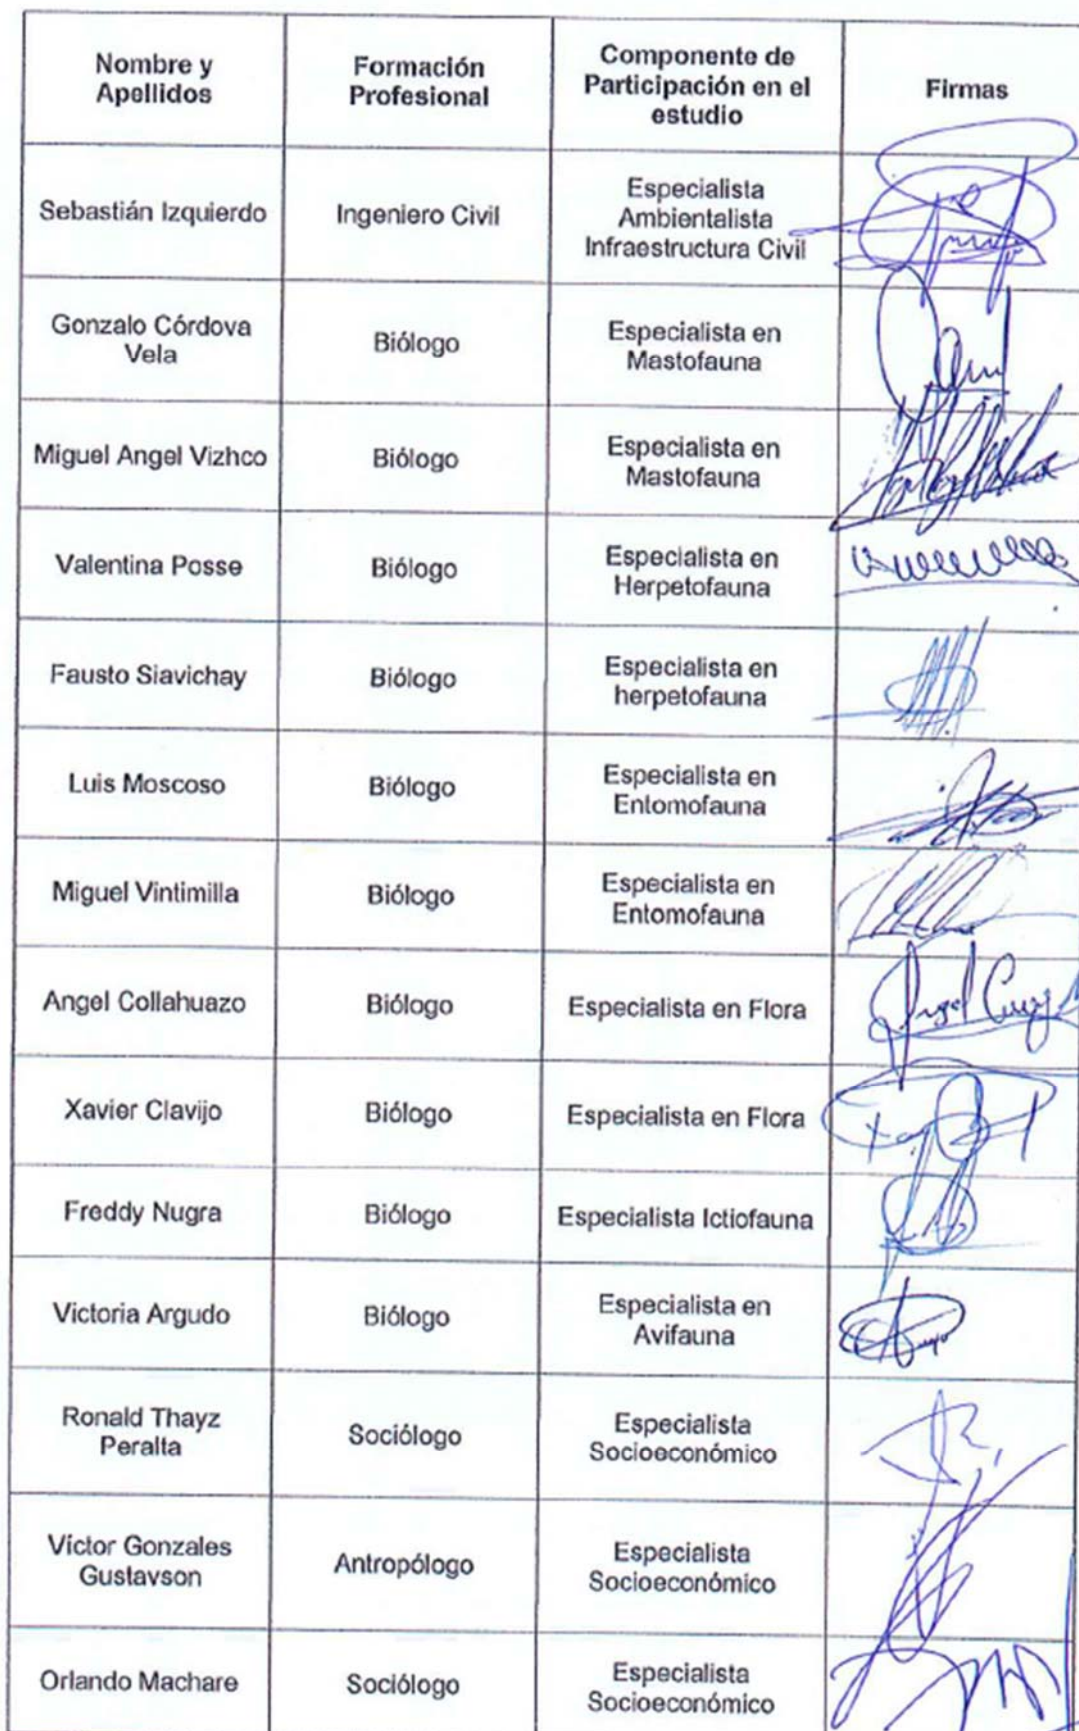 Nombre y
Apellidos
Formación
Profesional
Componente de
Participación en el
estudio
Firmas
Sebastián Izquierdo
Ingeniero Civil
Especialista
Ambientalista
Infraestructura Civil
Gonzalo Córdova
Vela
Biólogo
Especialista en
Mastofauna
Miguel Angel Vizhco
Biólogo
Especialista en
Mastofauna
Valentina Posse
Biólogo
Especialista en
Herpetofauna
Fausto Siavichay
Biólogo
Especialista en
herpetofauna
Luis Moscoso
Biólogo
Especialista en
Entomofauna
Miguel Vintimilla
Biólogo
Especialista en
Entomofauna
Angel Collahuazo
Biólogo
Especialista en Flora
Angel
Xavier Clavijo
Biólogo
Especialista en Flora
Freddy Nugra
Biólogo
Especialista Ictiofauna
Victoria Argudo
Biólogo
Especialista en
Avifauna
Ronald Thayz
Peralta
Sociólogo
Especialista
Socioeconómico
Víctor Gonzales
Gustavson
Antropólogo
Especialista
Socioeconómico
Orlando Machare
Sociólogo
Especialista
Socioeconómico